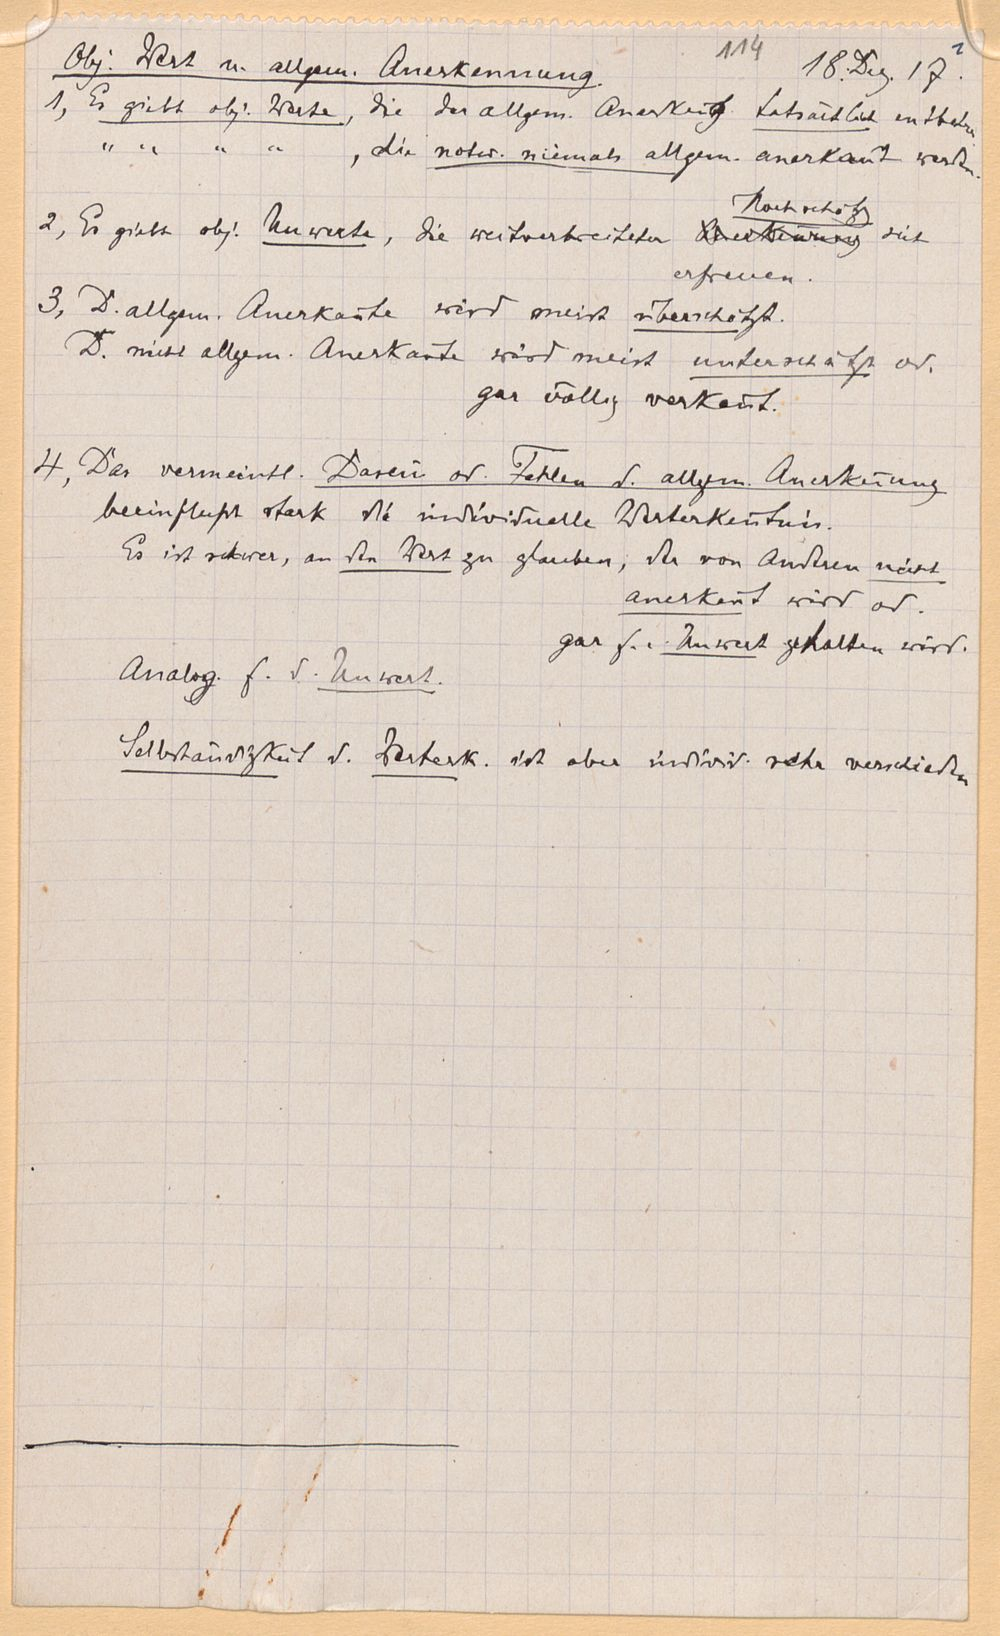 114
Obj. Wert u. allgem. Anerkennung. 18. Dez. 17.
1, Es giebt obj. Werte, die der allgem. Anerkeng tatsächlich entbehren
" " " " , die notw. niemals allgem. anerkannt werden.
Hochschätzg
2, Es giebt obj. Unwerte, die weitverbreiteter Anerkennung sich
erfreuen.
3, D. allgem. Anerkannte wird meist überschätzt.
D. nicht allgem. Anerkannte wird meist unterschätzt od.
gar völlig verkannt.
4, Das vermeintl. Dasein od. Fehlen d. allgem. Anerkennung
beeinflußt stark die individuelle Werterkenntnis.
Es ist schwer, an den Wert zu glauben, der von Anderen nicht
anerkannt wird od.
gar f. e. Unwert gehalten wird.
Analog f. d. Unwert.
Selbständigkeit d. Werterk. ist aber individ. sehr verschieden